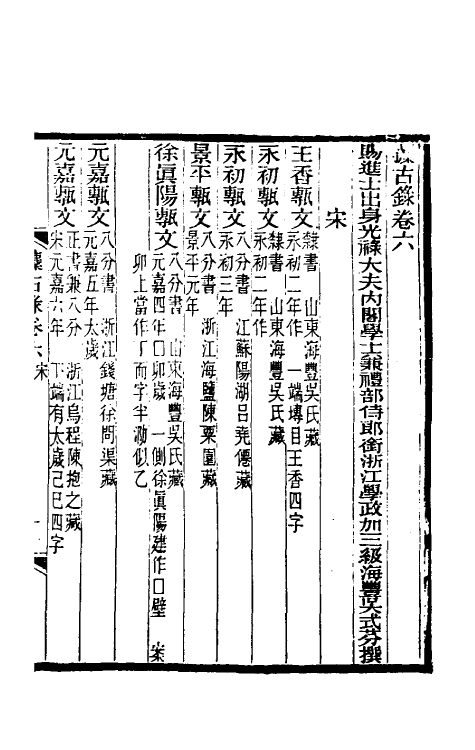 攈古錄卷六
賜進士出身光祿大夫內閣學士兼禮部侍郎銜浙江學政加三級海豐吳式芬撰
宋
王香甎文
隸書　山東海豐吳氏藏
永初二年作　一端塼目王香四字
永初甎文
隸書　山東海豐吳氏藏
永初二年作
永初甎文
八分書　江蘇陽湖呂堯僊藏
永初三年
景平甎文
八分書　浙江海鹽陳粟園藏
景平元年
徐眞陽甎文
八分書　山東海豐吳氏藏
元嘉四年囗卯歲　一側徐眞陽建作囗壁　案
卯上當作丁而字半泐似乙
元嘉甎文
八分書　浙江錢塘徐問渠藏
元嘉五年太歲
元嘉甎文
正書兼八分　浙江烏程陳抱之藏
宋元嘉六年　下端有太歲己巳四字
攈古錄卷六宋
一